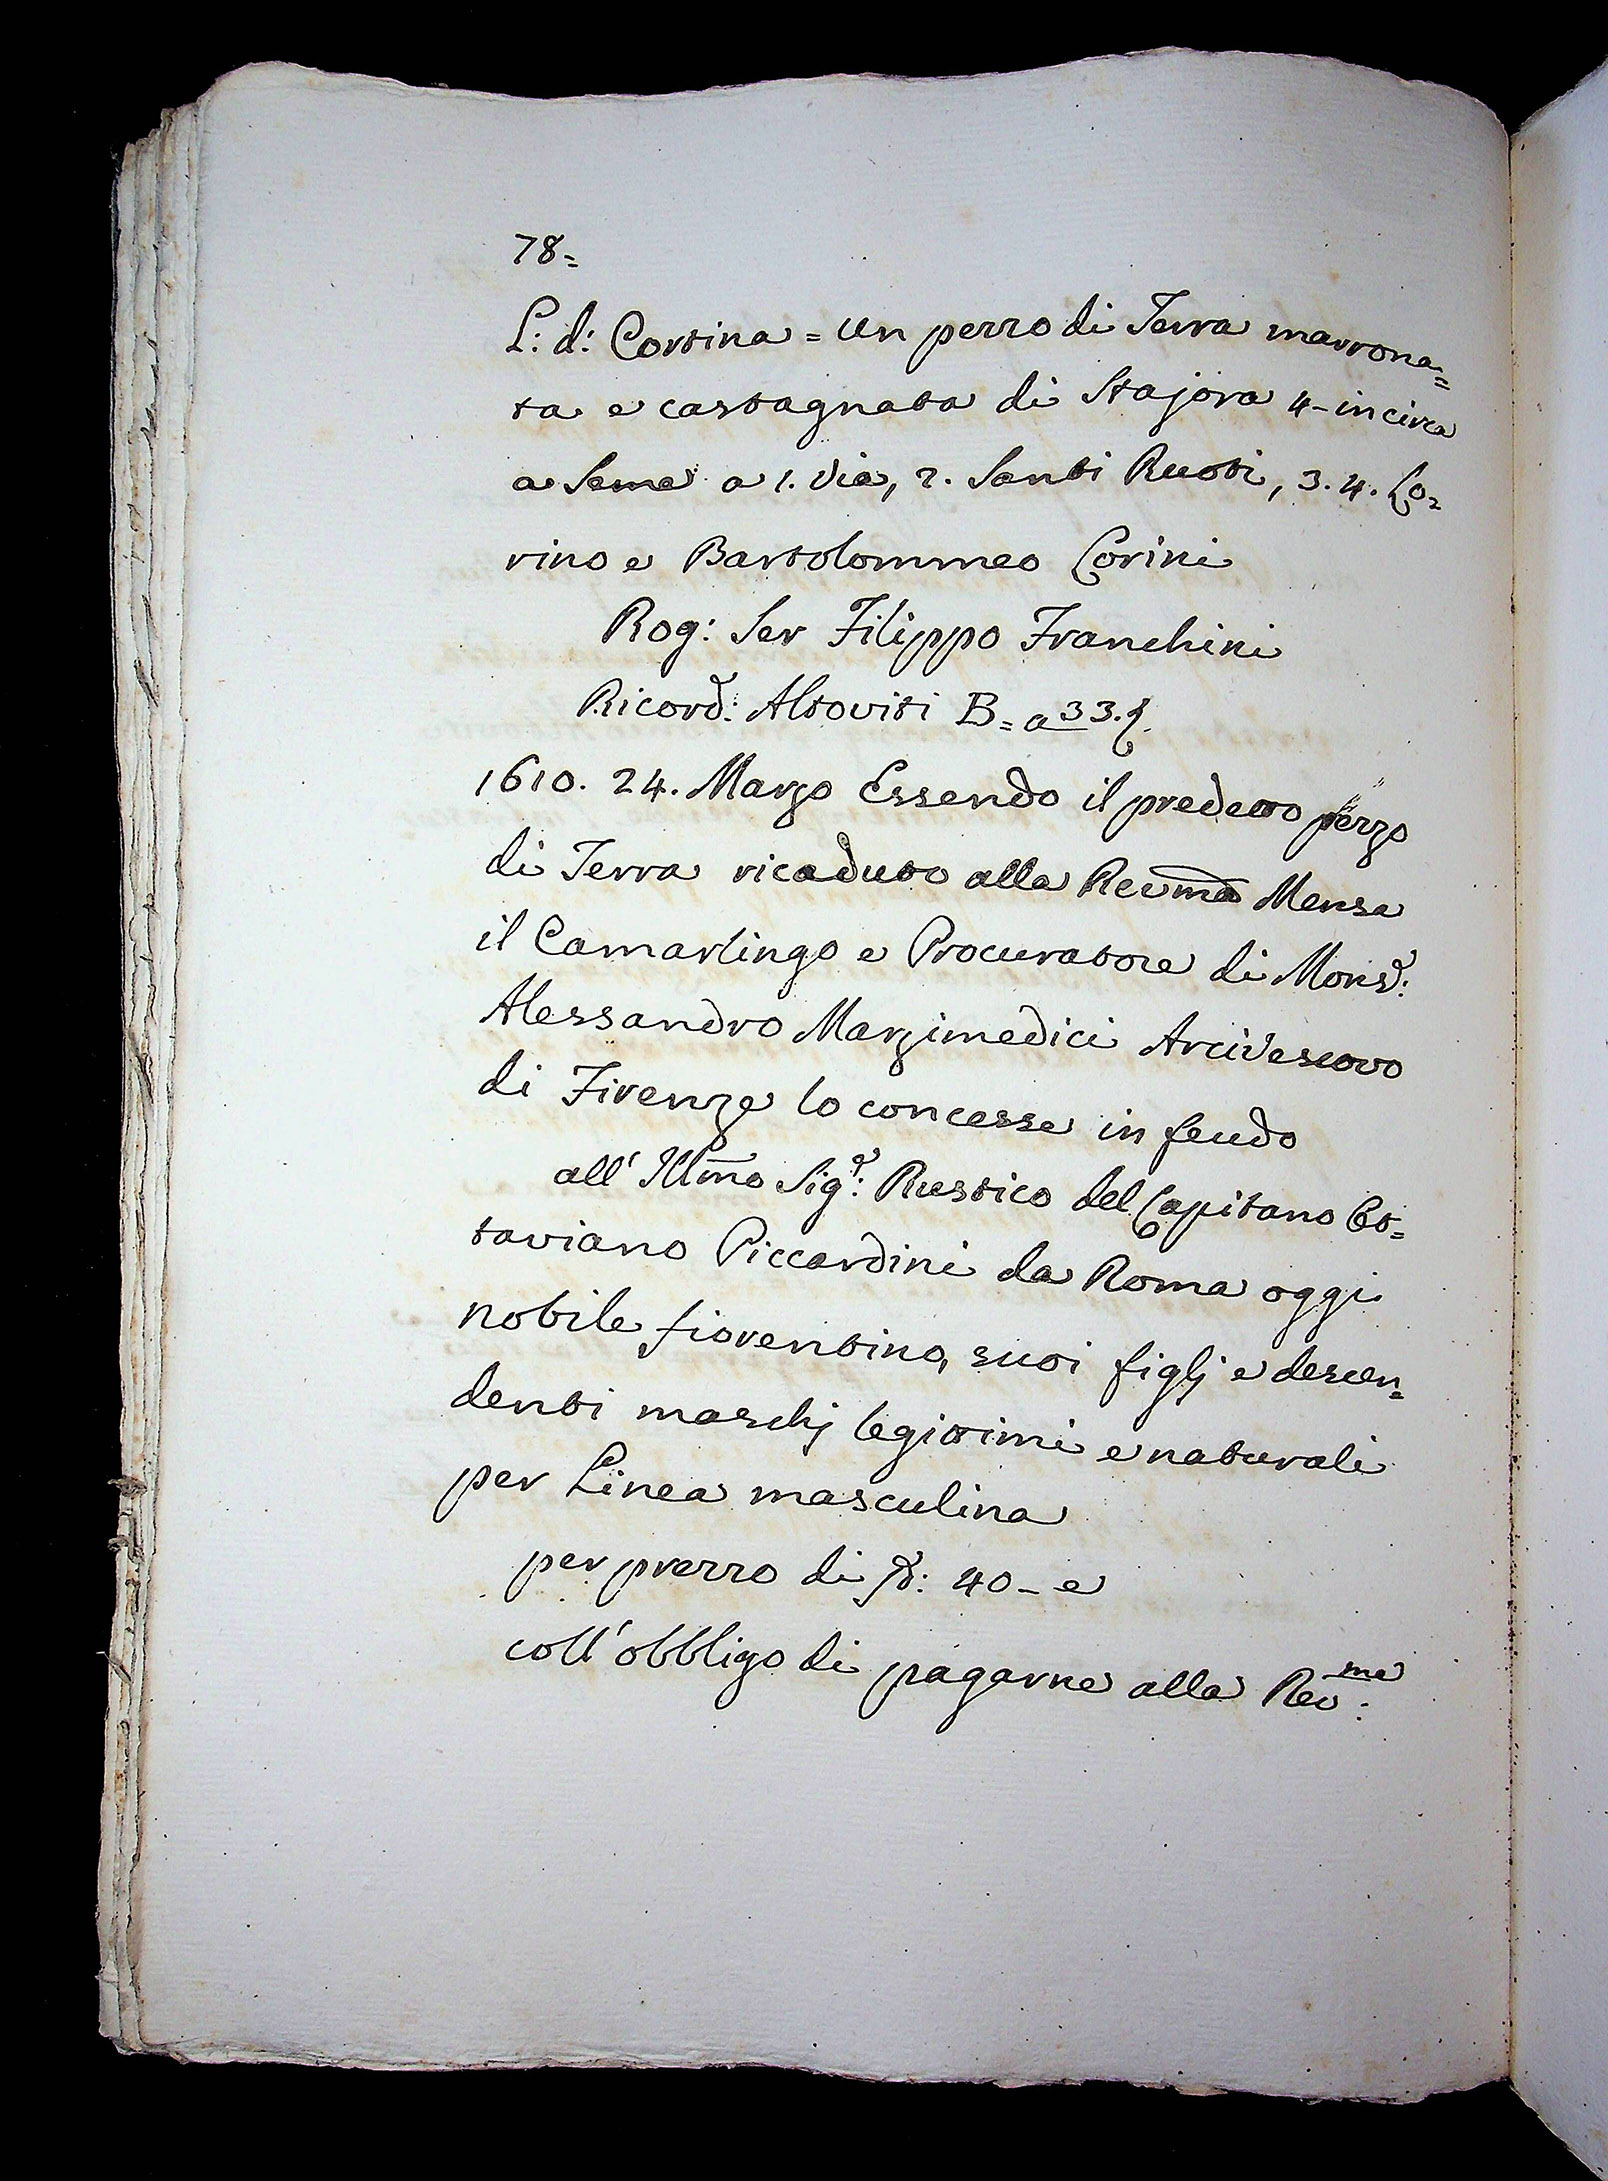 78=
L: d: Cortina = Un pezzo di Terra marrona=
ta e castagnata di Stajora 4 - incirca
a Seme a 1. Via, 2. Santi Ruoti, 3. 4. Lo=
rino e Bartolommeo Corini
Rog: Ser Filippo Franchini
Ricord: Altoviti B = a 33.
1610. 24. Marzo Essendo il predetto pezzo
di Terra ricaduto alla Revma Mensa
il Camarlingo e Procuratore di Monsr:
Alessandro Marzimedici Arcivescovo
di Firenze lo concesse in feudo
all' Illmo Sigr: Rustico del Capitano Ot=
taviano Piccardini da Roma oggi
nobile fiorentino, suoi figlj e descen=
denti maschj legittimi e naturali
per Linea masculina
per prezzo di 40 - e
coll' obbligo di pagarne alla Revma: